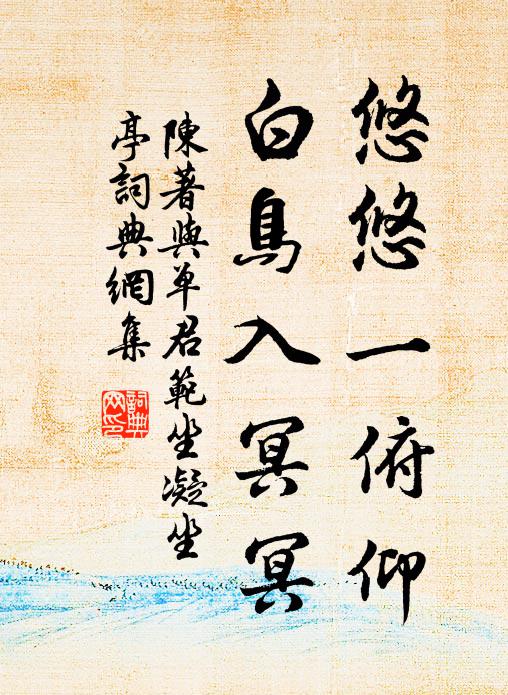 悠悠一俯仰
白鳥入冥冥
陳著與单君範坐凝坐
亭詞典網集
詞典網印